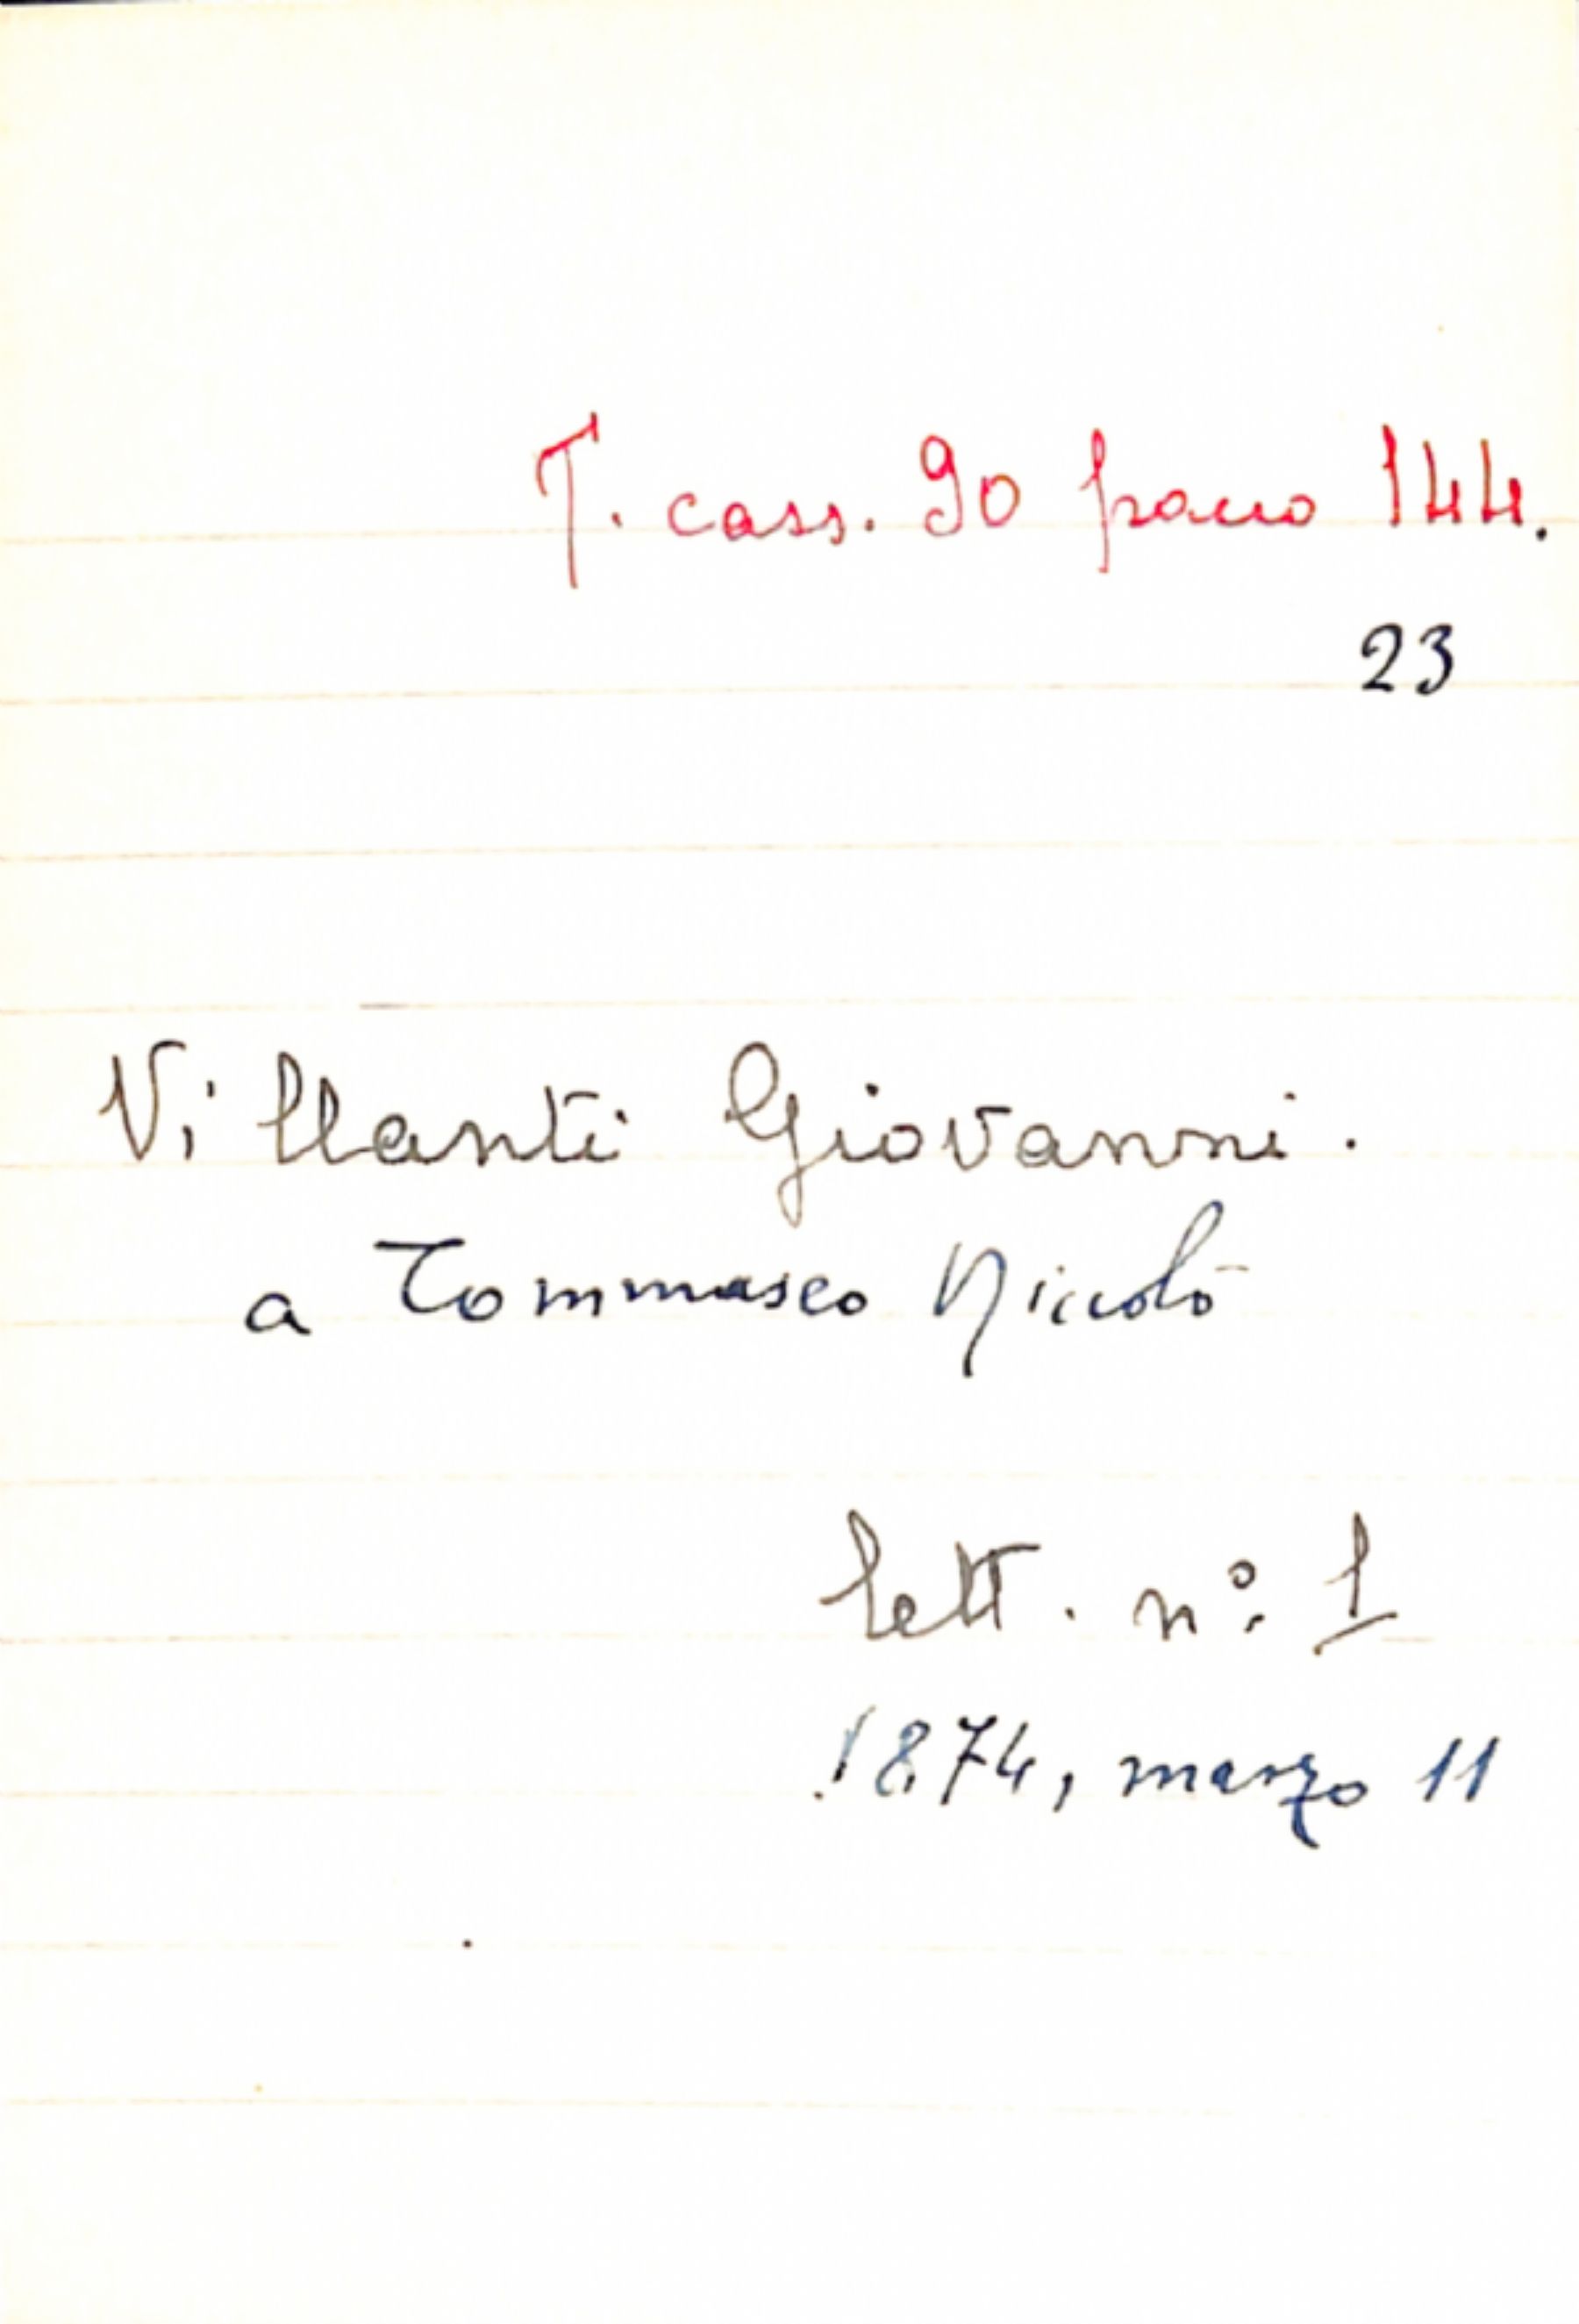 T. cass. 90 pacco 144.
23
Villanti Giovanni.
a Tommaseo Niccolò
lett. n.º 1
1874, marzo 11